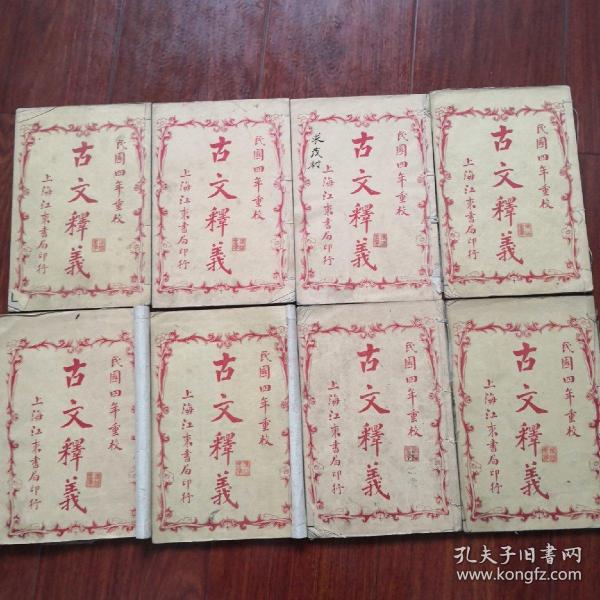 民國四年重校
古文釋義
上海江東書局印行
民國四年重校
古文釋義
上海江東書局印行
民國四年重校
古文釋義
上海江東書局印行
民國四年重校
古文釋義
上海江東書局印行
民國四年重校
古文釋義
上海江東書局印行
民國四年重校
古文釋義
上海江東書局印行
民國四年重校
古文釋義
上海江東書局印行
民國四年重校
古文釋義
上海江東書局印行
孔夫子旧书网
www.kongfz.com